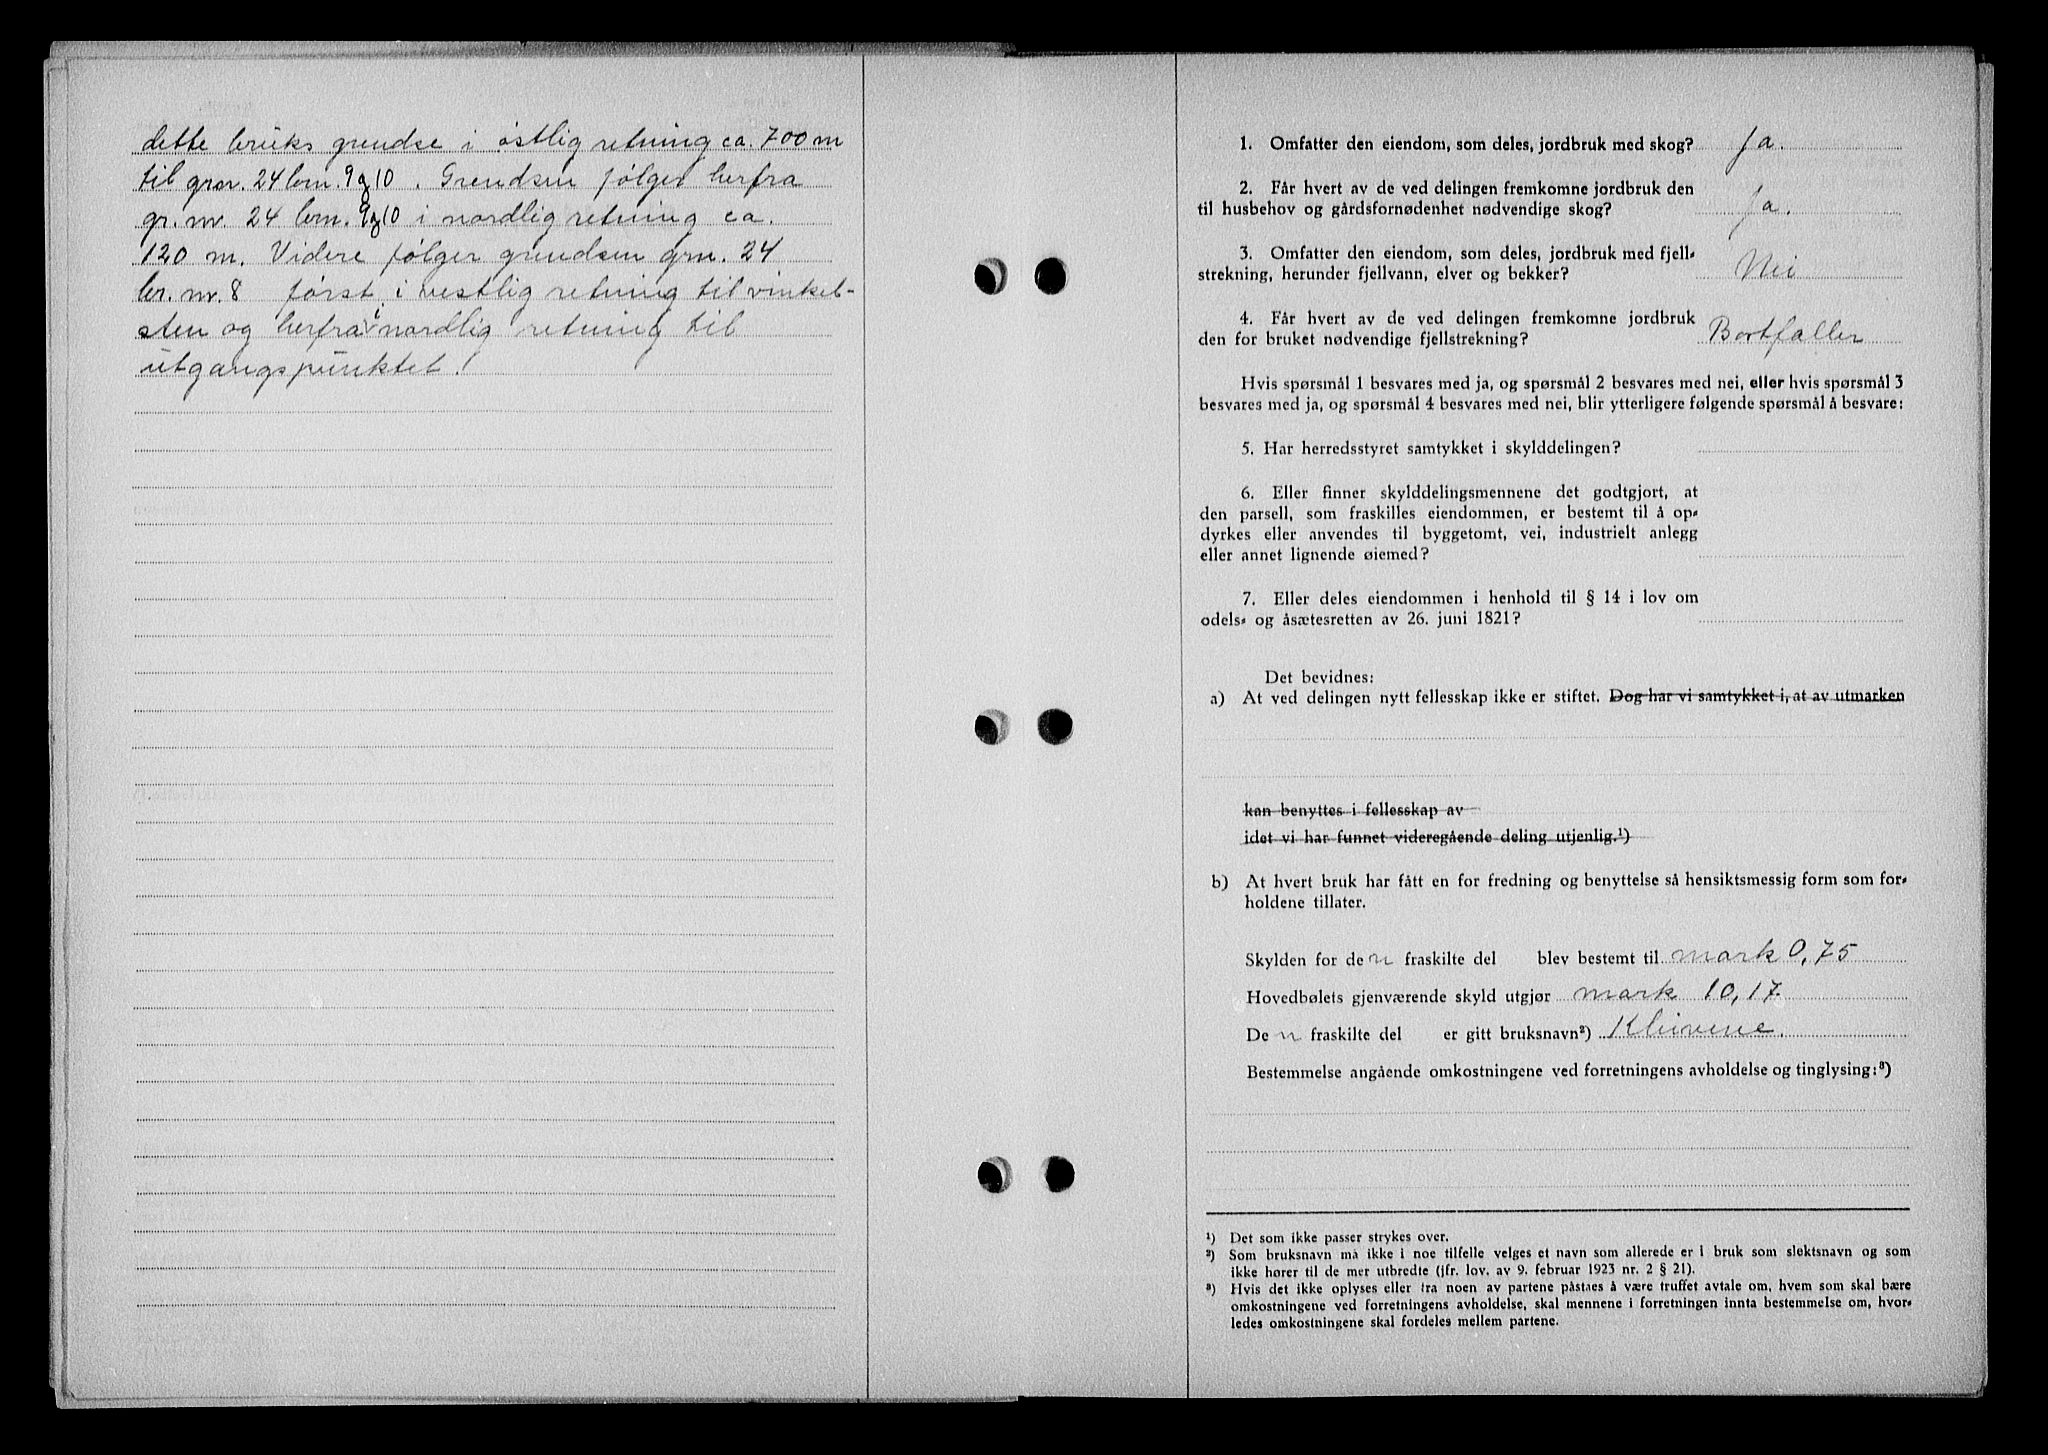 dette bruks grendse i østlig retning ca. 700 m
til grnr. 24 brn. 9 og 10. Grendsen følger herfra
gr. nr. 24 brn. 9 og 10 i nordlig retning ca.
120 m. Videre følger grendsen grn. 24
br. nr. 8 først i vestlig retning til vinkel-
sten og herfra i nordlig retning til
utgangspunktet!
1. Omfatter den eiendom, som deles, jordbruk med skog? Ja.
2. Får hvert av de ved delingen fremkomne jordbruk den
til husbehov og gårdsfornødenhet nødvendige skog? Ja.
3. Omfatter den eiendom, som deles, jordbruk med fjell-
strekning, herunder fjellvann, elver og bekker? Nei
4. Får hvert av de ved delingen fremkomne jordbruk
den for bruket nødvendige fjellstrekning? Bortfaller
Hvis spørsmål 1 besvares med ja, og spørsmål 2 besvares med nei, eller hvis spørsmål 3
besvares med ja, og spørsmål 4 besvares med nei, blir ytterligere følgende spørsmål å besvare:
5. Har herredsstyret samtykket i skylddelingen?
6. Eller finner skylddelingsmennene det godtgjort, at
den parsell, som fraskilles eiendommen, er bestemt til å op-
dyrkes eller anvendes til byggetomt, vei, industrielt anlegg
eller annet lignende øiemed?
7. Eller deles eiendommen i henhold til § 14 i lov om
odels- og åsætesretten av 26. juni 1821?
Det bevidnes:
a) At ved delingen nytt fellesskap ikke er stiftet. Dog har vi samtykket i, at av utmarken
kan benyttes i fellesskap av
idet vi har funnet videregående deling utjenlig.¹)
b) At hvert bruk har fått en for fredning og benyttelse så hensiktsmessig form som for-
holdene tillater.
Skylden for den fraskilte del blev bestemt til mark 0,75
Hovedbølets gjenværende skyld utgjør mark 10,17
Den fraskilte del er gitt bruksnavn²) Kleivene.
Bestemmelse angående omkostningene ved forretningens avholdelse og tinglysing:³)
¹) Det som ikke passer strykes over.
²) Som bruksnavn må ikke i noe tilfelle velges et navn som allerede er i bruk som slektsnavn og som
ikke hører til de mer utbredte (jfr. lov. av 9. februar 1923 nr. 2 § 21).
³) Hvis det ikke oplyses eller fra noen av partene påstaes å være truffet avtale om, hvem som skal bære
omkostningene ved forretningens avholdelse, skal mennene i forretningen innta bestemmelse om, hvor-
ledes omkostningene skal fordeles mellem partene.